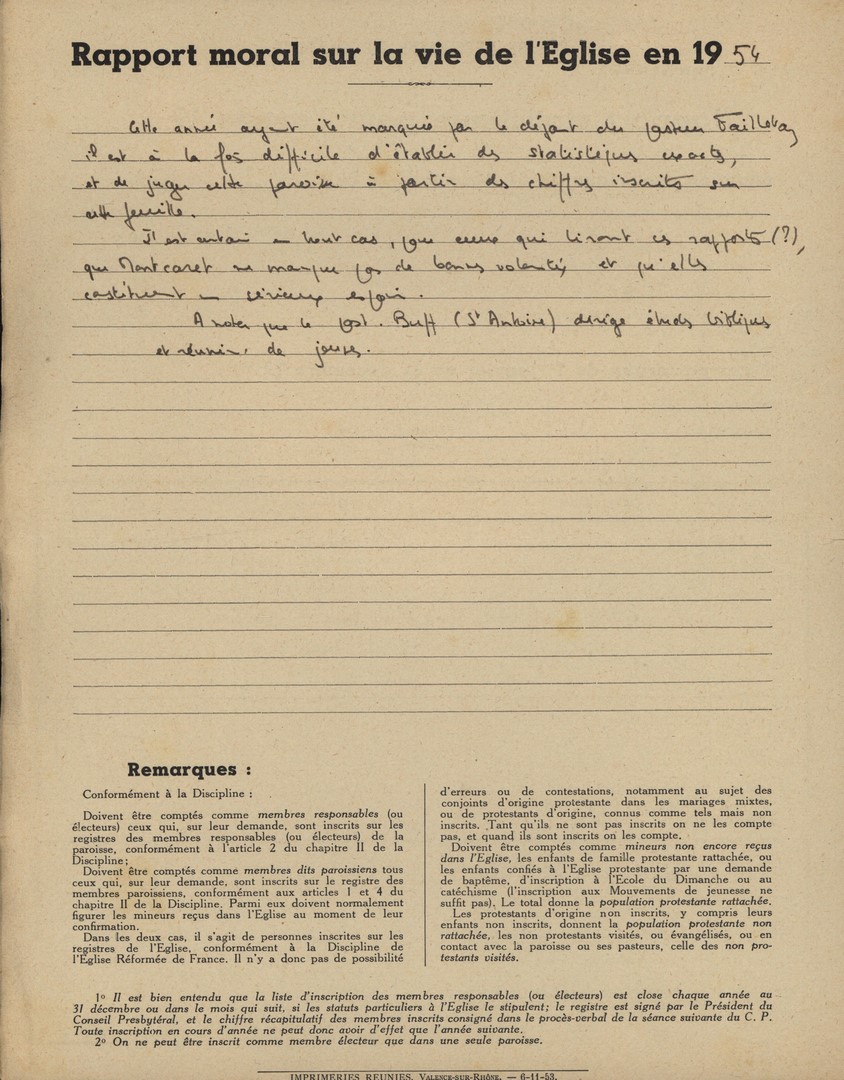 Rapport moral sur la vie de l'Eglise en 1954
Cette année ayant été marquée par le départ du pasteur
il est à la fois difficile d'établir des statistiques exactes,
et de juger cette paroisse à partir des chiffres inscrits sur
cette feuille.
Il est certain en tout cas, pour ceux qui liront ces rapports (?),
que Montcaret ne manque pas de bonnes volontés, et qu'elles
constituent un sérieux espoir.
A noter que le past. Buff (St Antoine) dirige études bibliques
et réunion. de jeunes.
Remarques :
Conformément à la Discipline :
Doivent être comptés comme membres responsables (ou
électeurs) ceux qui, sur leur demande, sont inscrits sur les
registres des membres responsables (ou électeurs) de la
paroisse, conformément à l'article 2 du chapitre II de la
Discipline;
Doivent être comptés comme membres dits paroissiens tous
ceux qui, sur leur demande, sont inscrits sur le registre des
membres paroissiens, conformément aux articles 1 et 4 du
chapitre II de la Discipline. Parmi eux doivent normalement
figurer les mineurs reçus dans l'Eglise au moment de leur
confirmation.
Dans les deux cas, il s'agit de personnes inscrites sur les
registres de l'Eglise, conformément à la Discipline de
l'Eglise Réformée de France. Il n'y a donc pas de possibilité
d'erreurs ou de contestations, notamment au sujet des
conjoints d'origine protestante dans les mariages mixtes,
ou de protestants d'origine, connus comme tels mais non
inscrits. Tant qu'ils ne sont pas inscrits on ne les compte
pas, et quand ils sont inscrits on les compte.
Doivent être comptés comme mineurs non encore reçus
dans l'Eglise, les enfants de famille protestante rattachée, ou
les enfants confiés à l'Eglise protestante par une demande
de baptême, d'inscription à l'Ecole du Dimanche ou au
catéchisme (l'inscription aux Mouvements de jeunesse ne
suffit pas). Le total donne la population protestante rattachée.
Les protestants d'origine non inscrits, y compris leurs
enfants non inscrits, donnent la population protestante non
rattachée, les non protestants visités, ou évangélisés, ou en
contact avec la paroisse ou ses pasteurs, celle des non pro-
testants visités.
1° Il est bien entendu que la liste d'inscription des membres responsables (ou électeurs) est close chaque année au
31 décembre ou dans le mois qui suit, si les statuts particuliers à l'Eglise le stipulent; le registre est signé par le Président du
Conseil Presbytéral, et le chiffre récapitulatif des membres inscrits consigné dans le procès-verbal de la séance suivante du C. P.
Toute inscription en cours d'année ne peut donc avoir d'effet que l'année suivante.
2° On ne peut être inscrit comme membre électeur que dans une seule paroisse.
IMPRIMERIES REUNIES, VALENCE-SUR-RHÔNE. — 6-11-53.